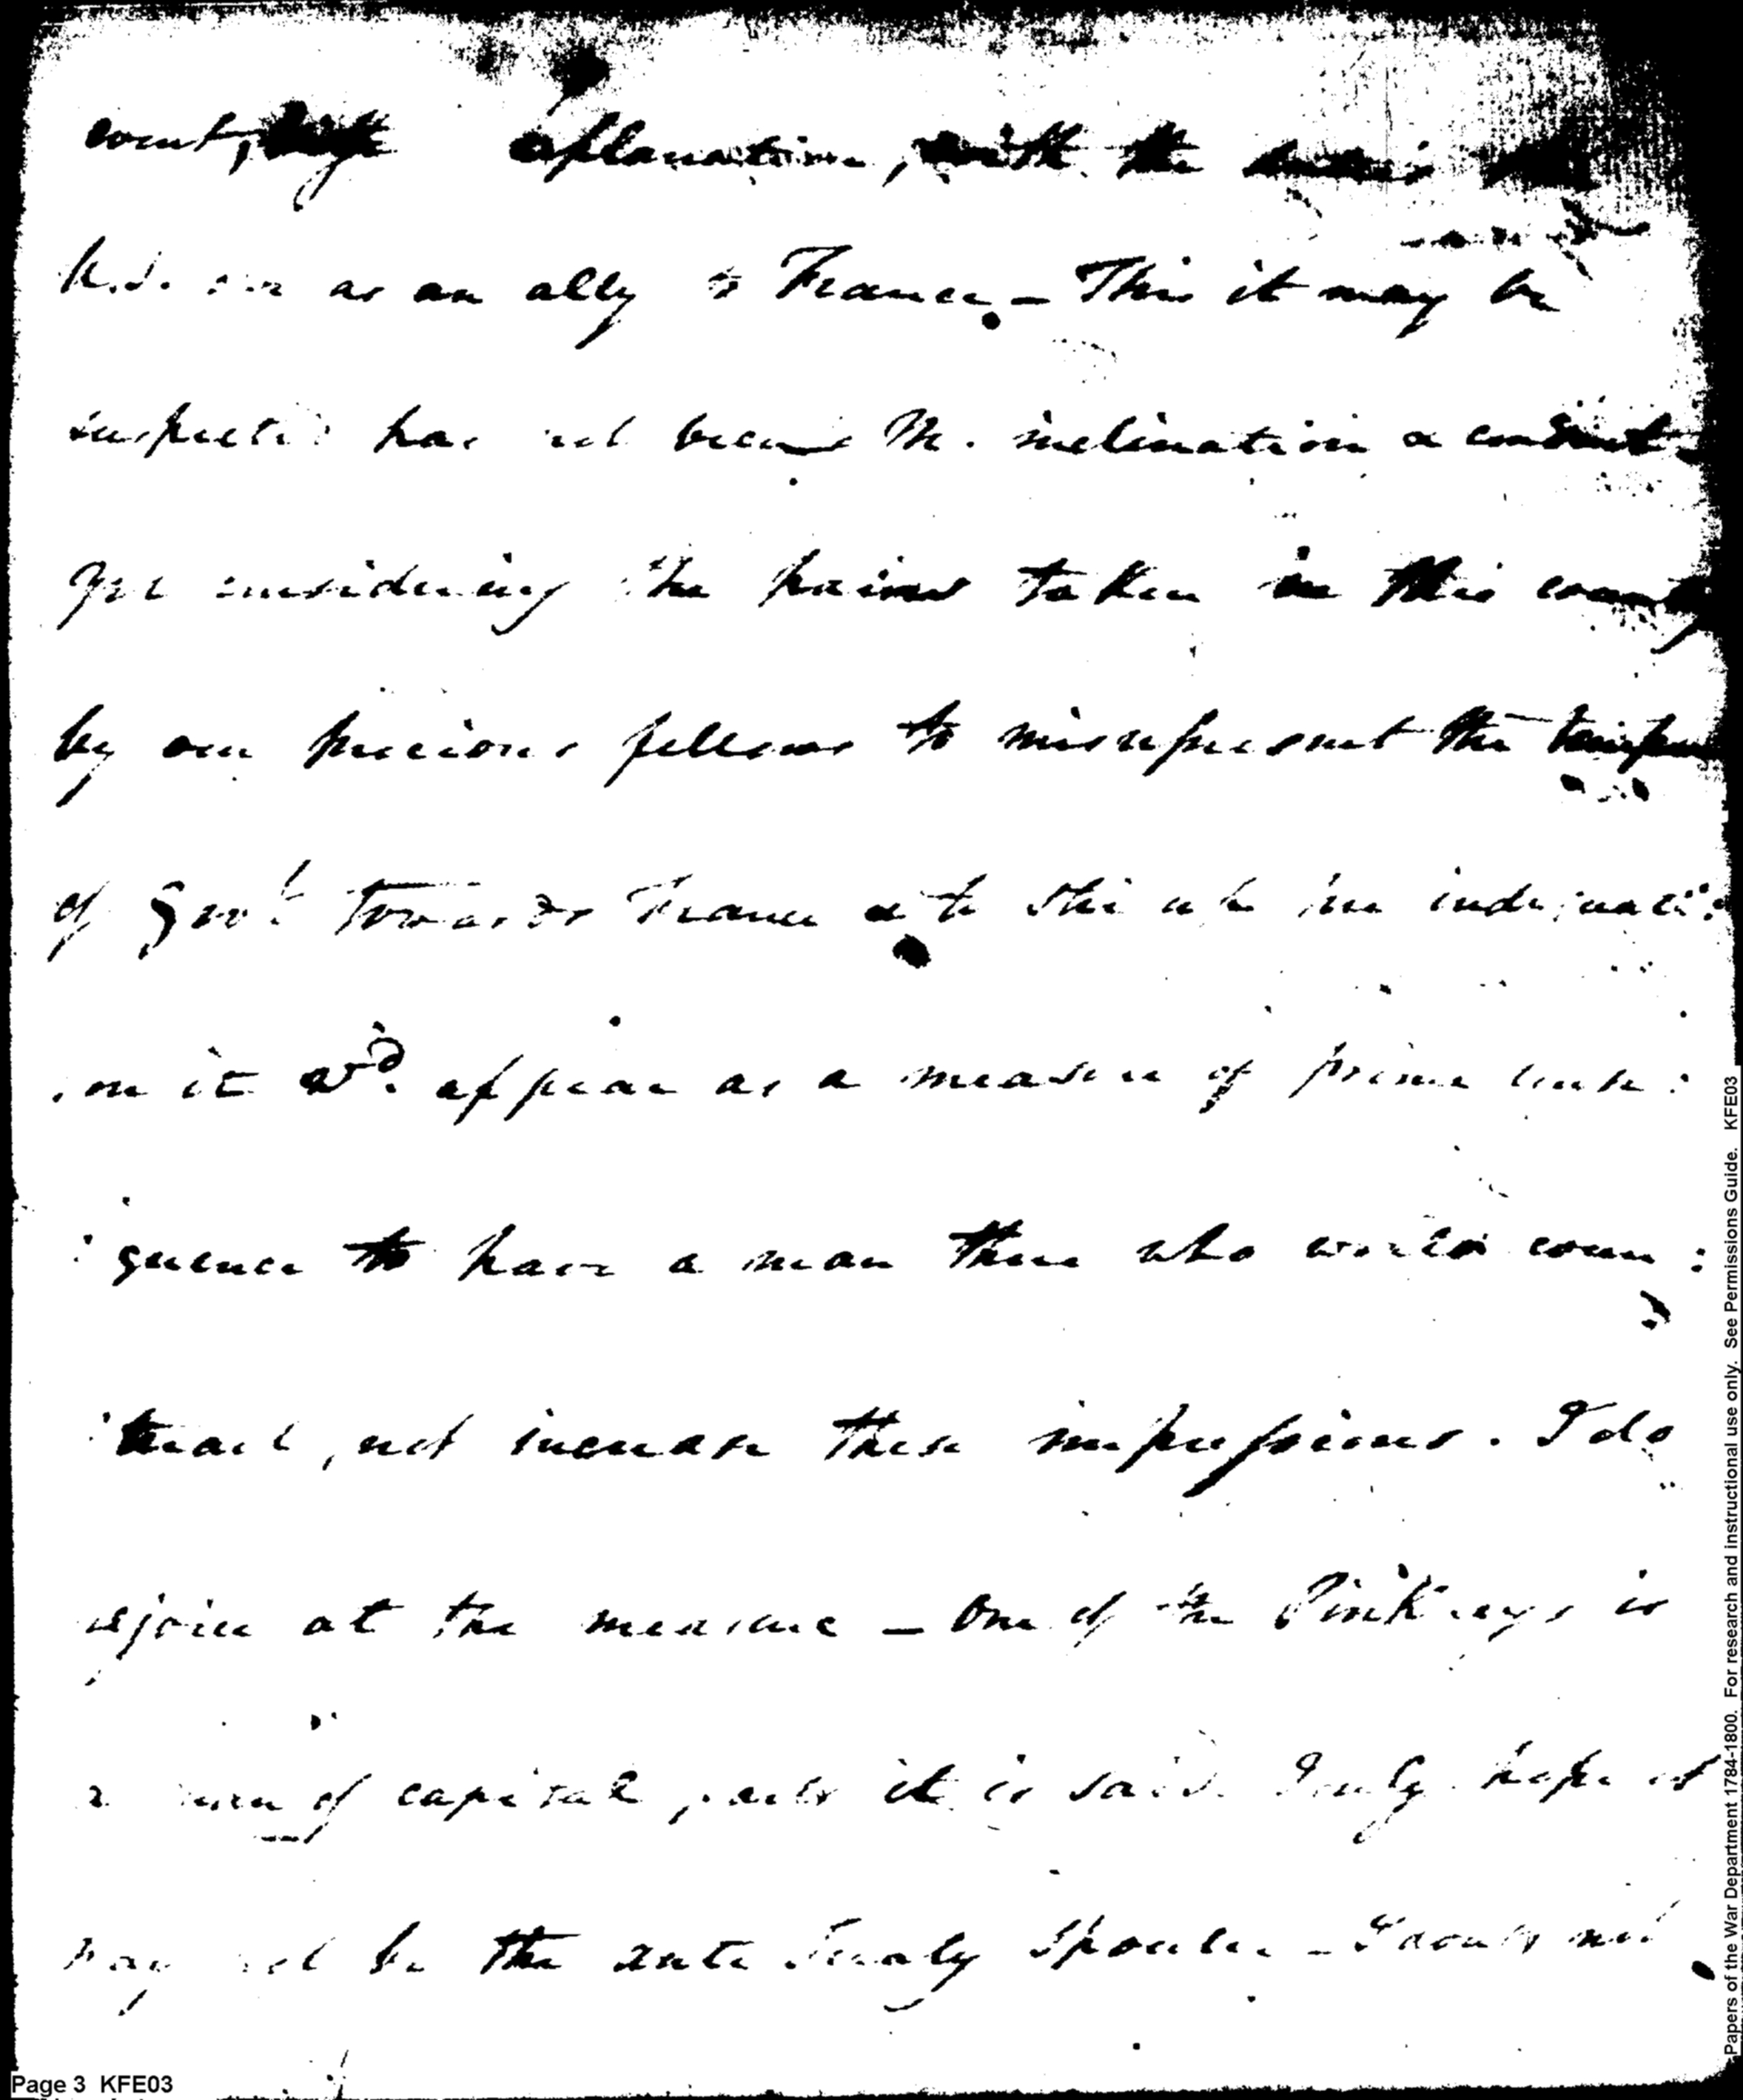 count, explanation, with the
U.S. as an ally to France. – This it may be
suspected has not been Mr. inclination a constant
yet considering the pains taken in this country
by our precious fellows to misrepresent the temper
of Govt. towards France & to stir up her indignati:
:on it wd. appear as a measure of prime conse:
:quence to have a man there who would coun:
:teract, not increase these impressions. I do
rejoice at the measure – One of the Pinkneys is
a man of capital parts it is said. Truly hope it
may not be the ante Treaty Spouter – I not
Page 3 KFE03
Papers of the War Department 1784-1800. For research and instructional use only. See Permissions Guide. KFE03